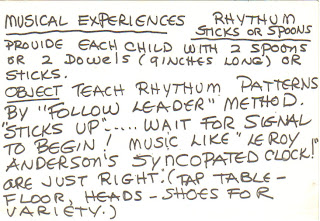 MUSICAL EXPERIENCES RHYTHUM
STICKS OR SPOONS
PROVIDE EACH CHILD WITH 2 SPOONS
OR 2 DOWELS (9 INCHES LONG) OR
STICKS.
OBJECT TEACH RHYTHUM PATTERNS
BY "FOLLOW LEADER" METHOD.
"STICKS UP"..... WAIT FOR SIGNAL
TO BEGIN! MUSIC LIKE "LEROY
ANDERSON'S SYNCOPATED CLOCK!"
ARE JUST RIGHT. (TAP TABLE-
FLOOR, HEADS - SHOES FOR
VARIETY.)